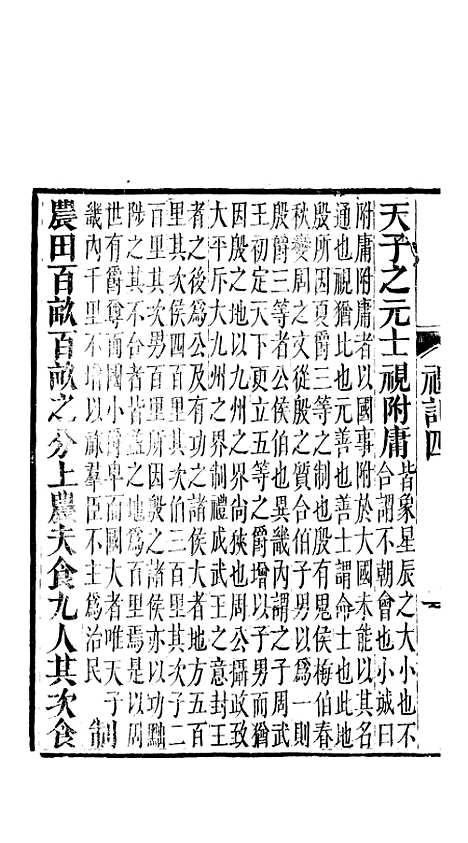 禮記四
一
天子之元士視附庸
皆象星辰之大小也不
合謂不朝會也小城曰
附庸附庸者以國事附於大國未能以其名
通也視猶比也元善也善士謂命士也此地
殷所因夏爵三等之制也殷有鬼侯梅伯春
秋變周之文從殷之質合伯子男以爲一則
殷爵三等者公侯伯也異畿内謂之子周武
王初定天下更立五等之爵增以子男而猶
因殷之地以九州之界尚狹也周公攝政致
大平斥大九州之界制禮成武王之意封王
者之後爲公及有功之諸侯大者地方五百
里其次侯四百里其次伯三百里其次子二
百里其次男百里所因殷之諸侯亦以功黜
陟之其不合者皆益之地爲百里焉是以周
世有爵尊而國小爵卑而國大者唯天子
畿内千里不增以祿羣臣不主爲治民
制
農田百畝百畝之分上農夫食九人其次食